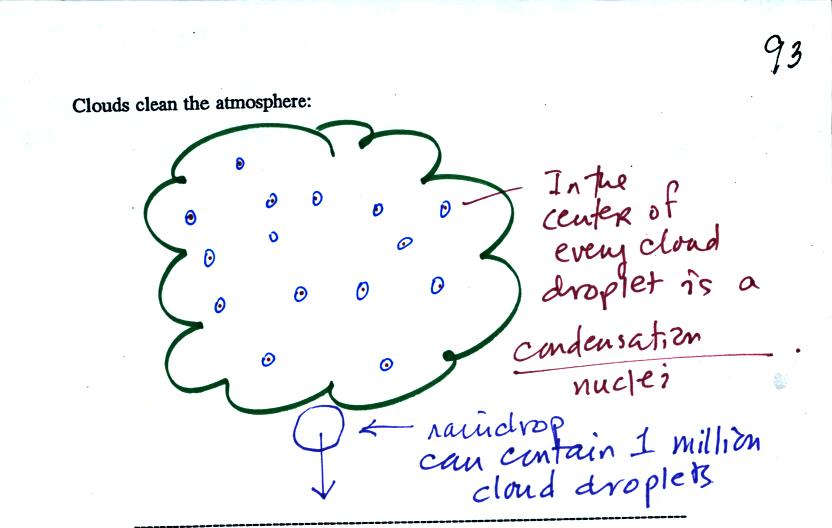 93
Clouds clean the atmosphere:
In the
center of
every cloud
droplet is a
condensation.
nuclei
raindrop
can contain 1 million
cloud droplets